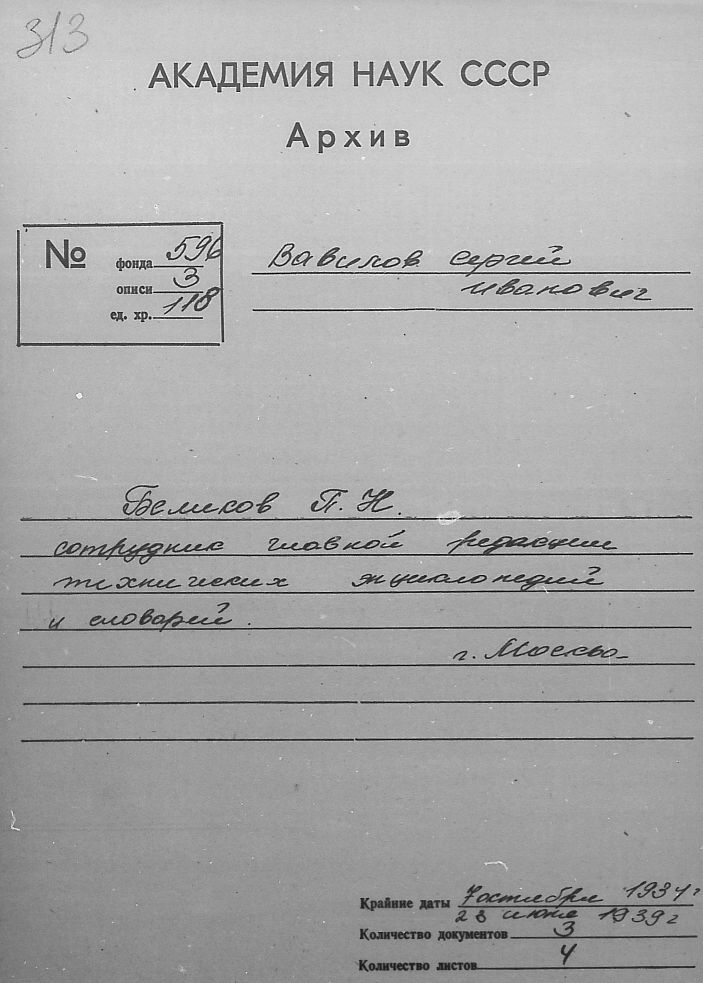 313
АКАДЕМИЯ НАУК СССР
Архив
№
фонда 596
описи 3
ед. хр. 118
Вавилов Сергей
Иванович
Беликов П.Н.
сотрудник главной редакции
технических энциклопедий
и словарей.
г. Москва
Крайние даты 7 октября 1934 г
28 июня 1939 г
Количество документов 3
Количество листов 4